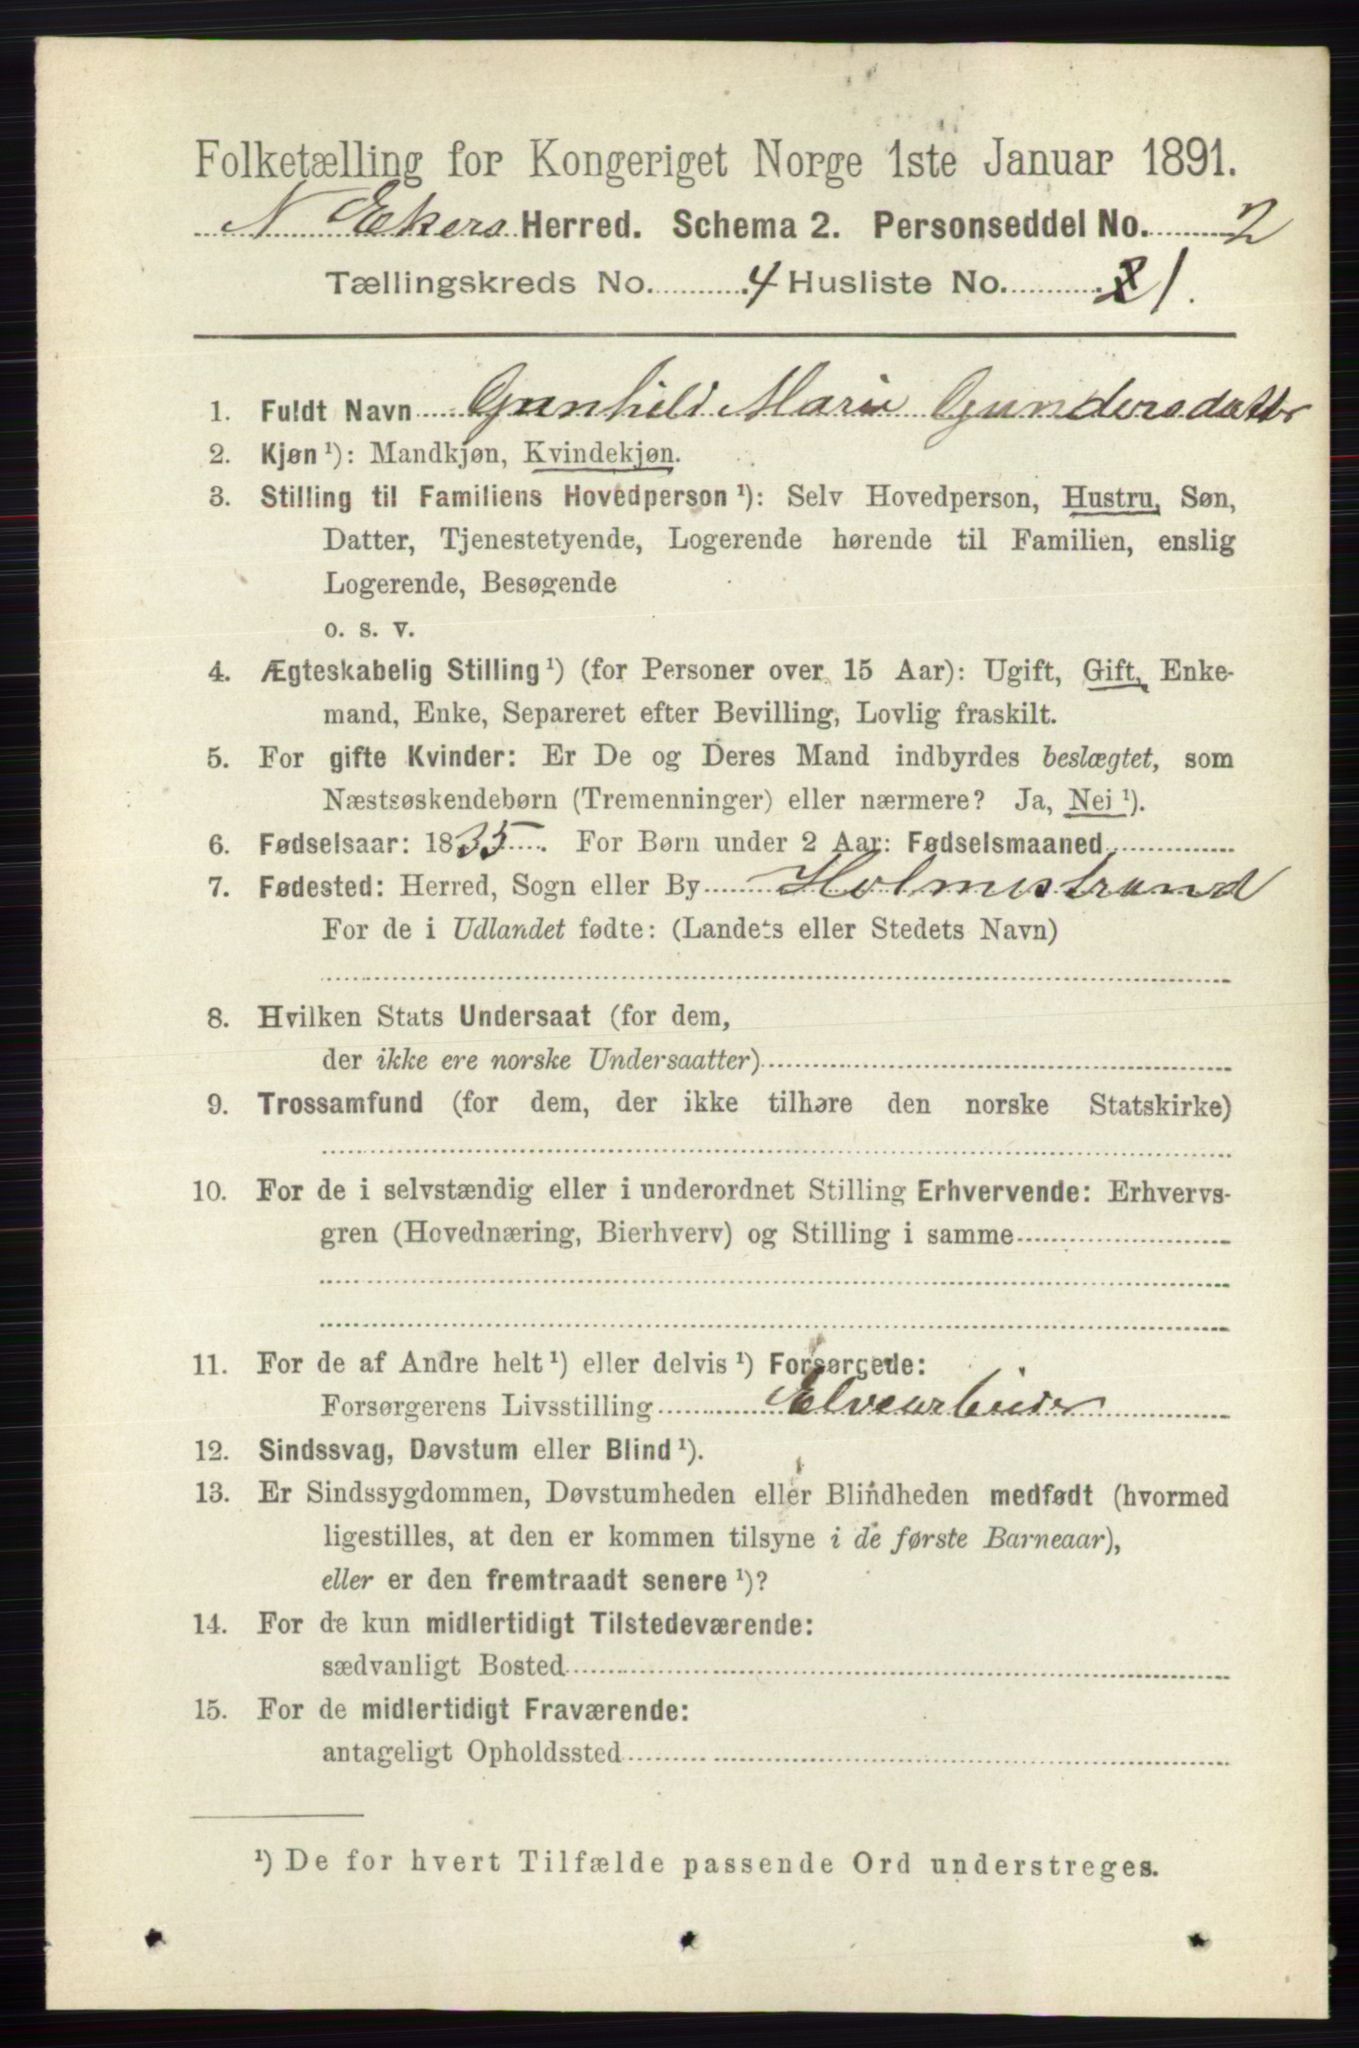 Folketælling for Kongeriget Norge 1ste Januar 1891.
N Ekers Herred. Schema 2. Personseddel No. 2
Tællingskreds No. 4 Husliste No. 21.
1. Fuldt Navn Gunhild Marie Gundersdatter
2. Kjøn ¹): Mandkjøn, Kvindekjøn.
3. Stilling til Familiens Hovedperson ¹): Selv Hovedperson, Hustru, Søn,
Datter, Tjenestetyende, Logerende hørende til Familien, enslig
Logerende, Besøgende
o. s. v.
4. Ægteskabelig Stilling ¹) (for Personer over 15 Aar): Ugift, Gift, Enke-
mand, Enke, Separeret efter Bevilling, Lovlig fraskilt.
5. For gifte Kvinder: Er De og Deres Mand indbyrdes beslægtet, som
Næstsøskendebørn (Tremenninger) eller nærmere? Ja, Nei ¹).
6. Fødselsaar: 1835. For Børn under 2 Aar: Fødselsmaaned
7. Fødested: Herred, Sogn eller By Holmestrand
For de i Udlandet fødte: (Landets eller Stedets Navn)
8. Hvilken Stats Undersaat (for dem,
der ikke ere norske Undersaatter)
9. Trossamfund (for dem, der ikke tilhøre den norske Statskirke)
10. For de i selvstændig eller i underordnet Stilling Erhvervende: Erhvervs-
gren (Hovednæring, Bierhverv) og Stilling i samme
11. For de af Andre helt ¹) eller delvis ¹) Forsørgede:
Forsørgerens Livsstilling Elvearbeider
12. Sindssvag, Døvstum eller Blind ¹).
13. Er Sindssygdommen, Døvstumheden eller Blindheden medfødt (hvormed
ligestilles, at den er kommen tilsyne i de første Barneaar),
eller er den fremtraadt senere ¹)?
14. For de kun midlertidigt Tilstedeværende:
sædvanligt Bosted
15. For de midlertidigt Fraværende:
antageligt Opholdssted
¹) De for hvert Tilfælde passende Ord understreges.